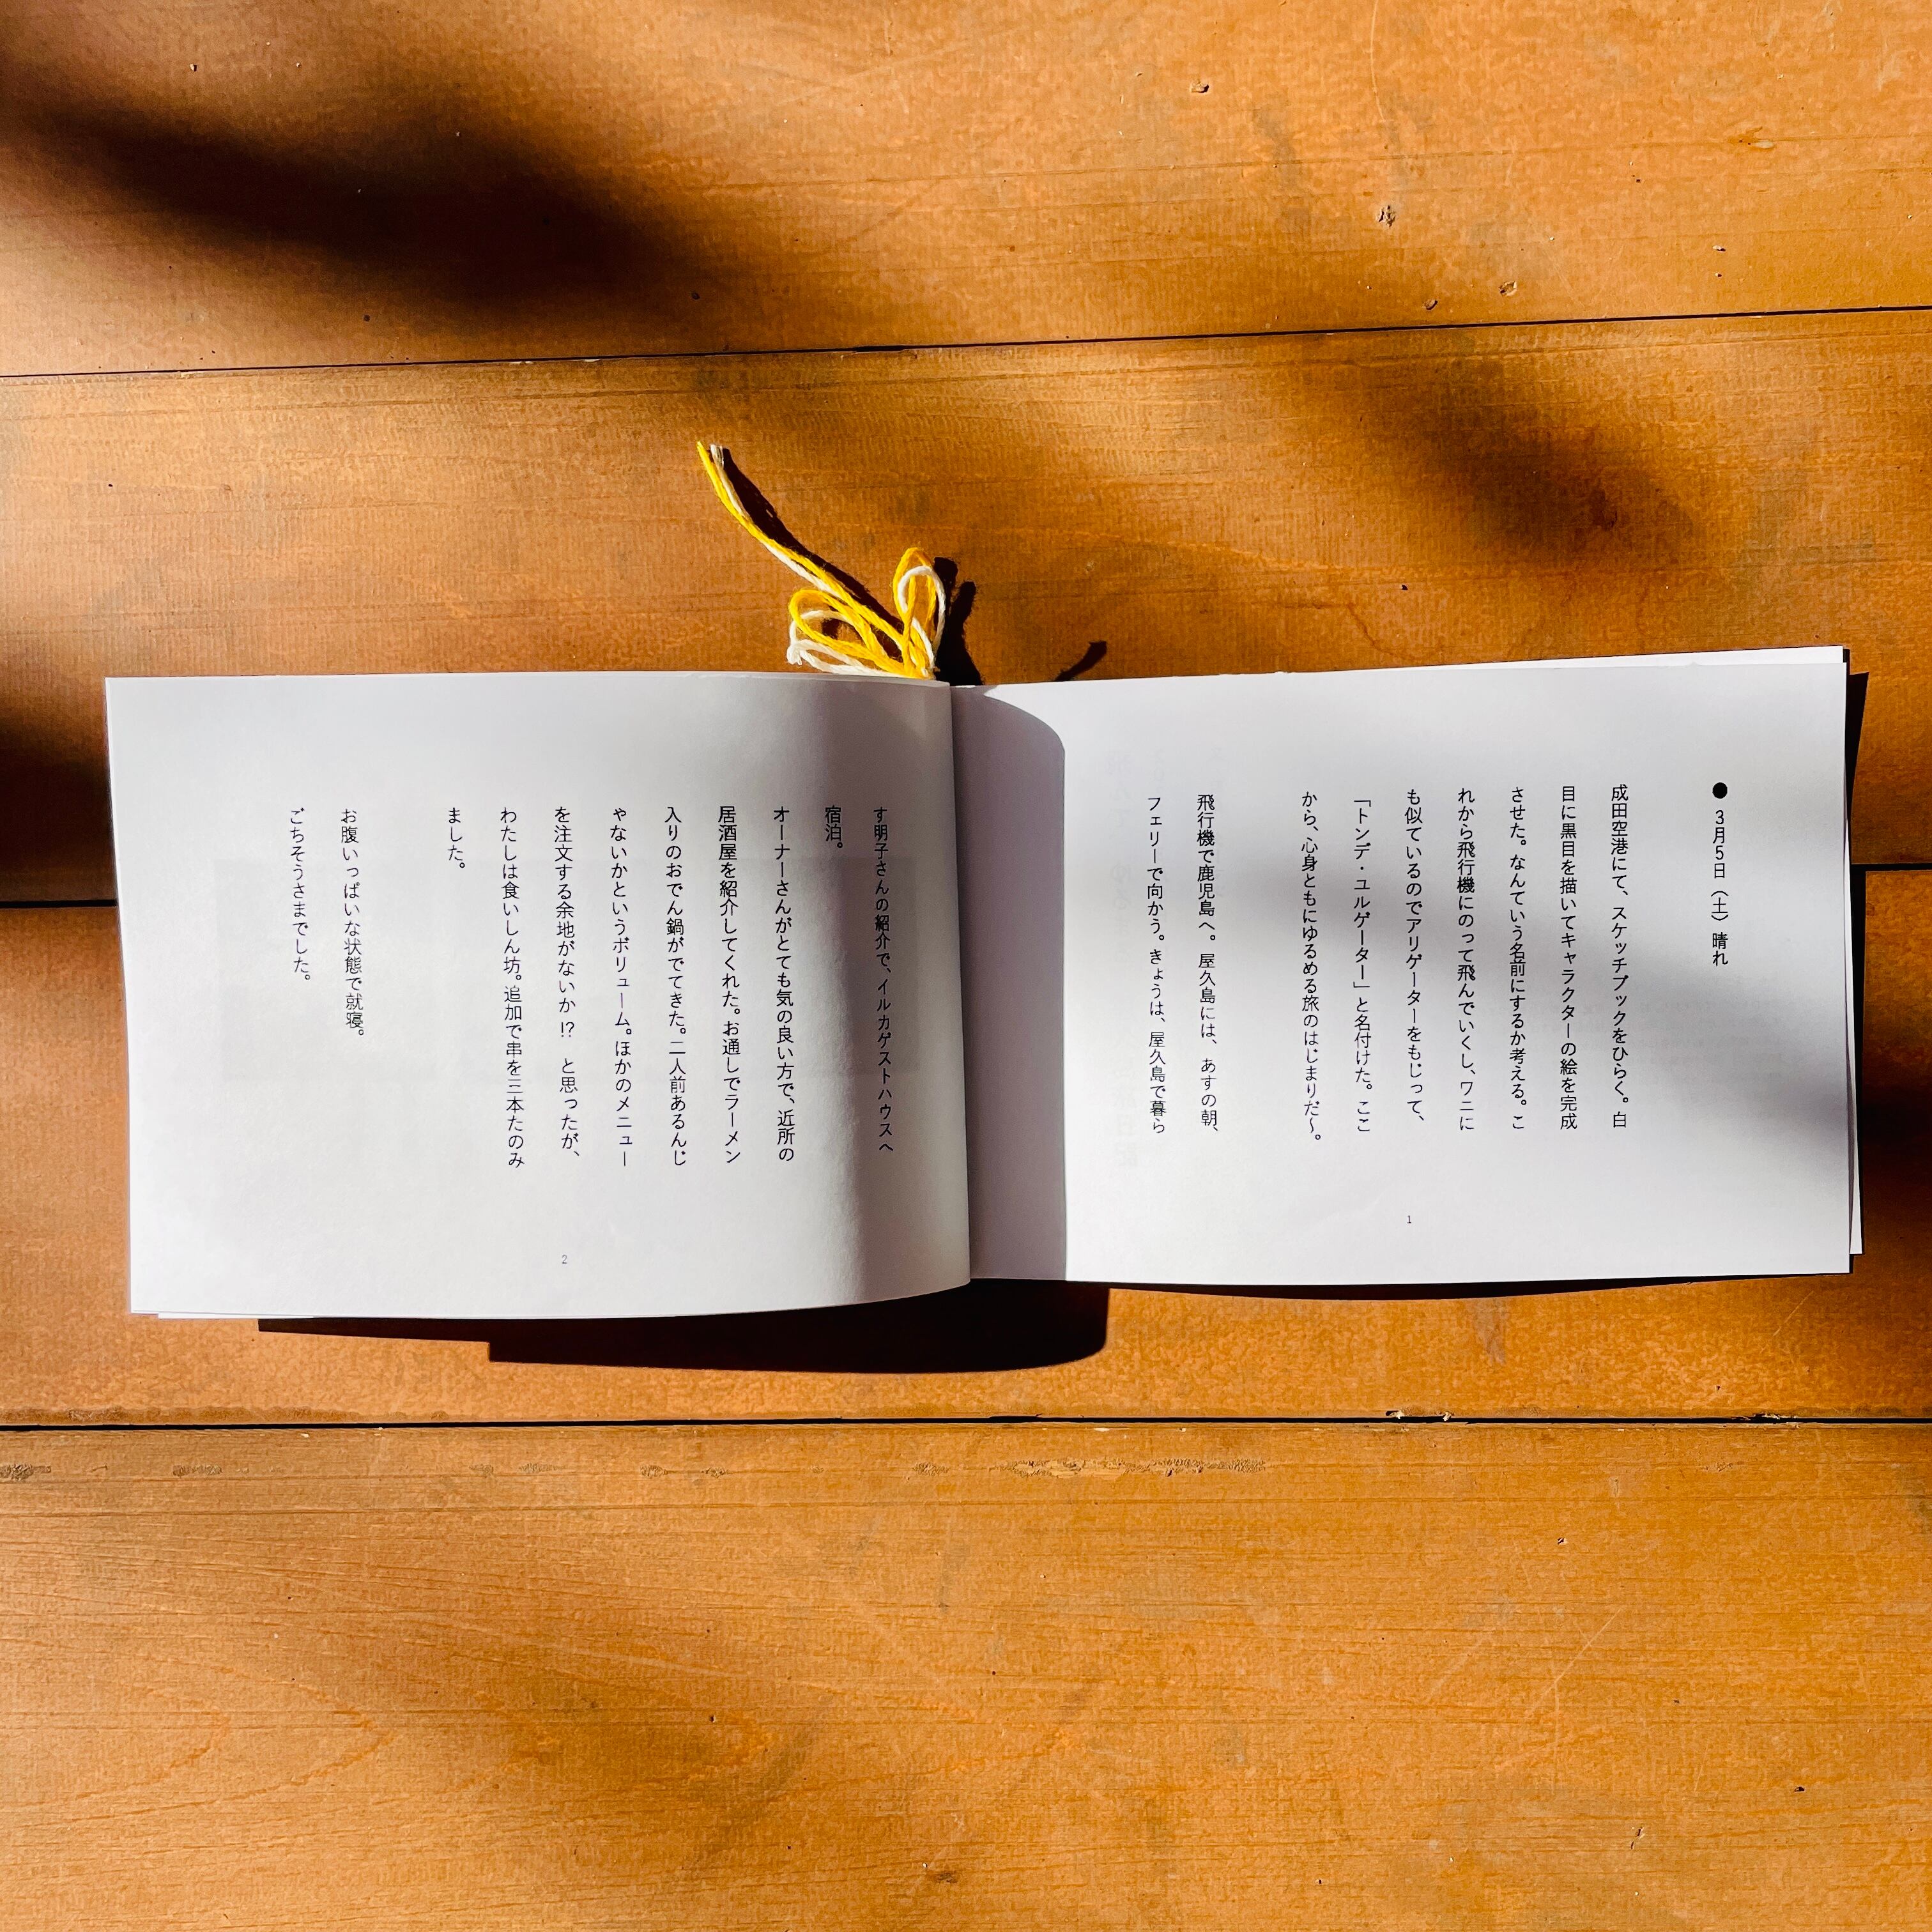 ●3月5日（土）晴れ
成田空港にて、スケッチブックをひらく。白
目に黒目を描いてキャラクターの絵を完成
させた。なんていう名前にするか考える。こ
れから飛行機にのって飛んでいくし、ワニに
も似ているのでアリゲーターをもじって、
「トンデ・ユルゲーター」と名付けた。ここ
から、心身ともにゆるめる旅のはじまりだ〜。
飛行機で鹿児島へ。屋久島には、あすの朝、
フェリーで向かう。きょうは、屋久島で暮ら
1
す明子さんの紹介で、イルカゲストハウスへ
宿泊。
オーナーさんがとても気の良い方で、近所の
居酒屋を紹介してくれた。お通しでラーメン
入りのおでん鍋がでてきた。二人前あるんじ
ゃないかというボリューム。ほかのメニュー
を注文する余地がないか!?　と思ったが、
わたしは食いしん坊。追加で串を三本たのみ
ました。
お腹いっぱいな状態で就寝。
ごちそうさまでした。
2